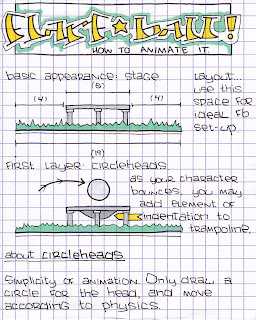 HOW TO ANIMATE IT.
basic appearance: stage
(5)
(4)
(4)
Layout...
use this
space for
ideal Fb
set-up
(19)
First Layer: circleheads
as your character
bounces, you may
add element of
indentation to
trampoline.
about circleheads.
Simplicity of animation. Only draw a
circle for the head, and move
according to physics.